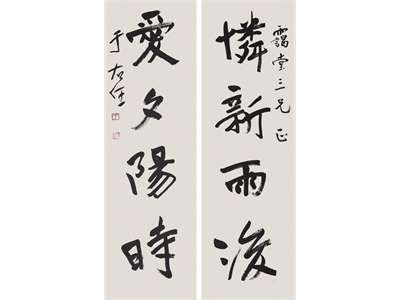 棠三兄 正
憐新雨後
愛夕陽時
于右任